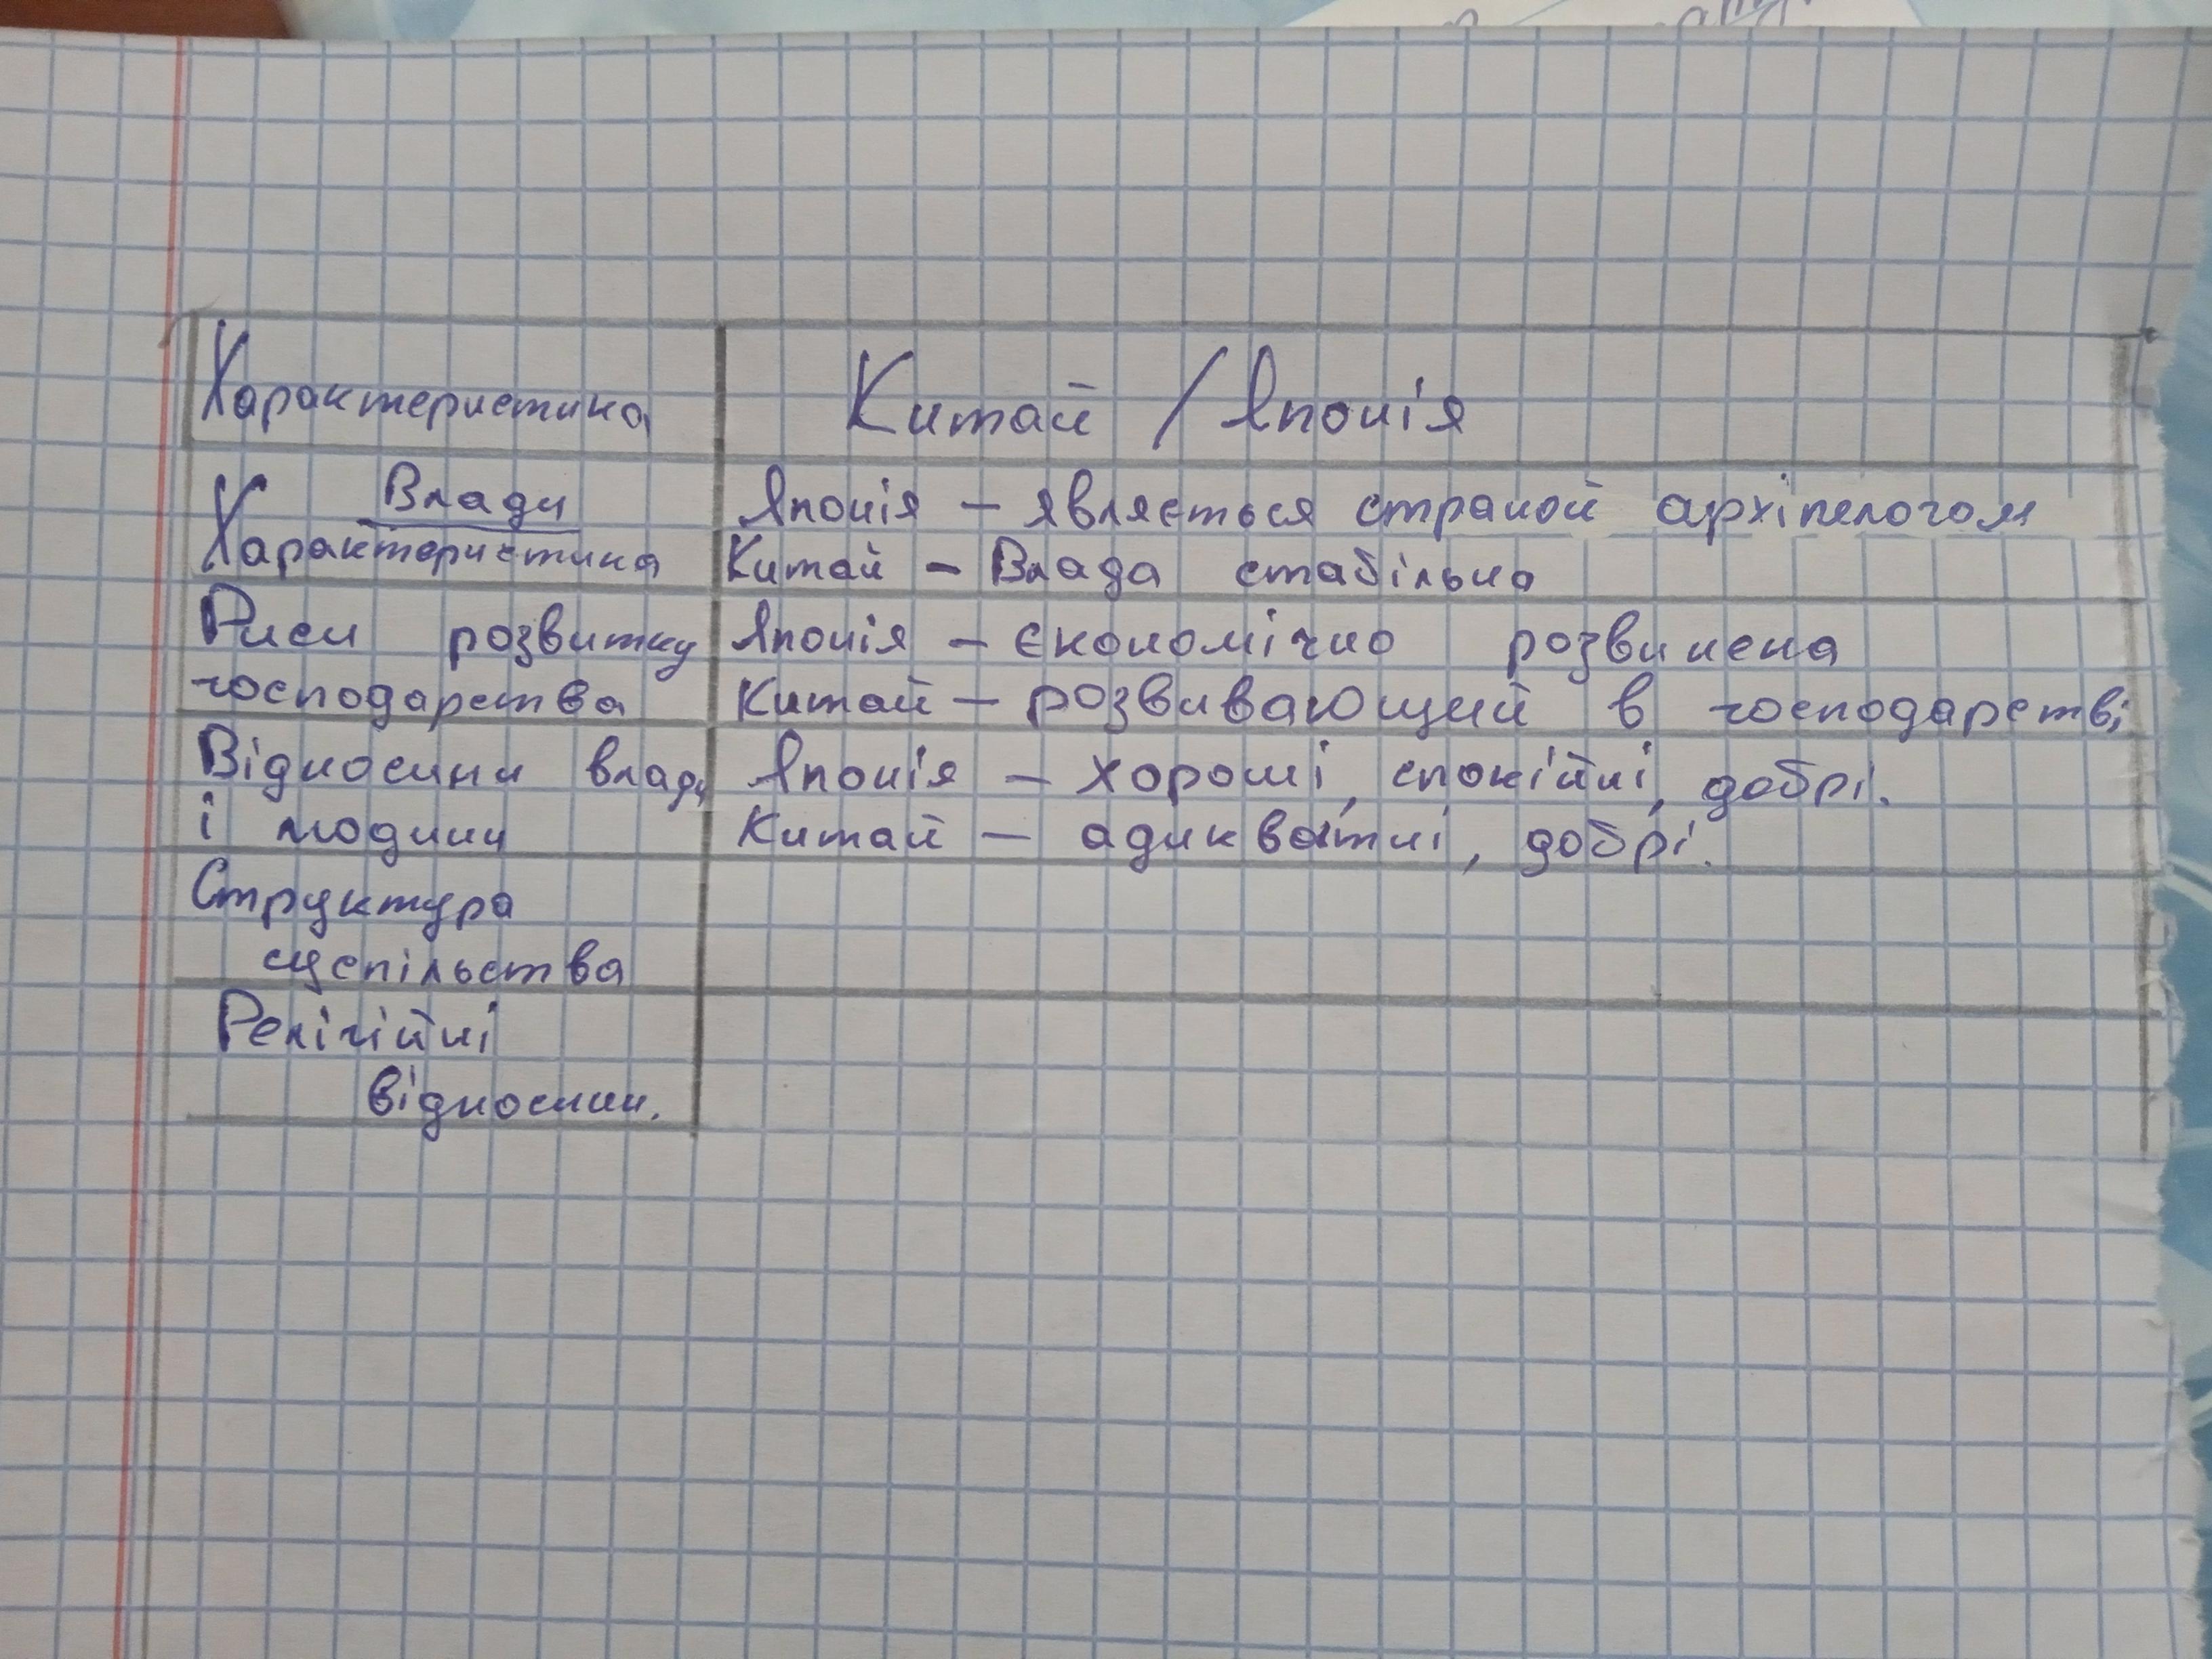 Характеристика
Китай / Японія
Влади
Характеристика
Японія – являється страной архіпелогом
Китай – Влада стабільна
Риси розвитку
господарства
Японія – єкономічно розвинена
Китай – розвивающий в господарстві
Відносини влади
і людини
Японія – хороші, спокійні, добрі.
Китай – адикватні, добрі.
Структура
суспільства
Релігійні
відносини.